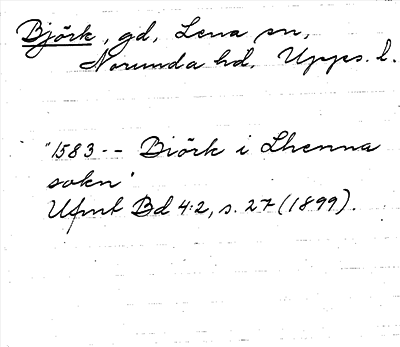 Björk, gd, Lena sn,
Norunda hd, Upps. l.
"1583 -- Biörk i Lhenna
sokn"
Ufmt Bd 4:2, s. 27 (1899).